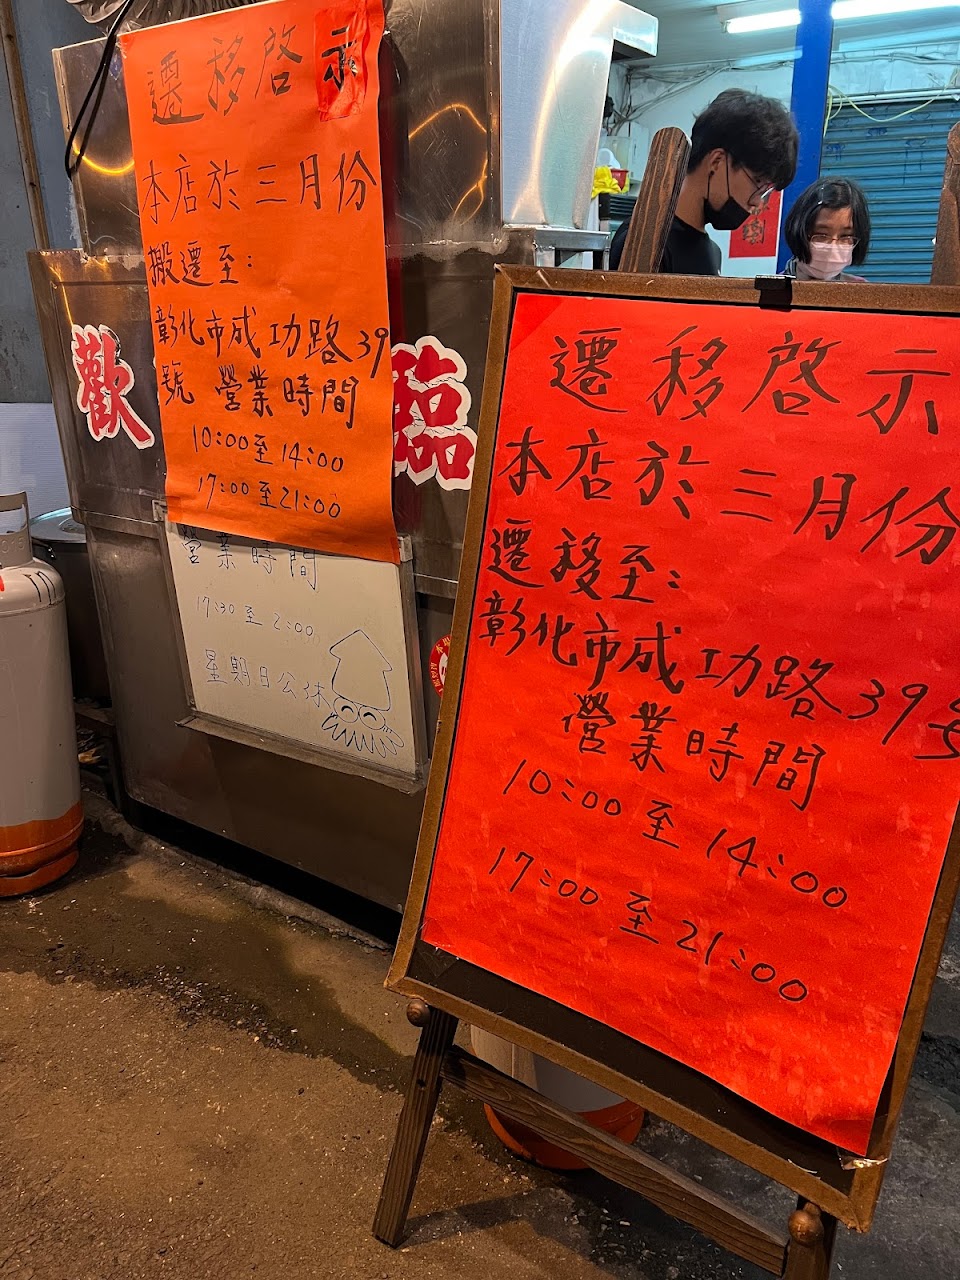 遷移啓示
本店於三月份
搬遷至:
彰化市成功路39
號 營業時間
10:00至14:00
17:00至21:00
歡
臨
營業時間
17:30至2:00
星期日公休
遷移啓示
本店於三月份
遷移至:
彰化市成功路39
營業時間
10:00至14:00
17:00至21:00